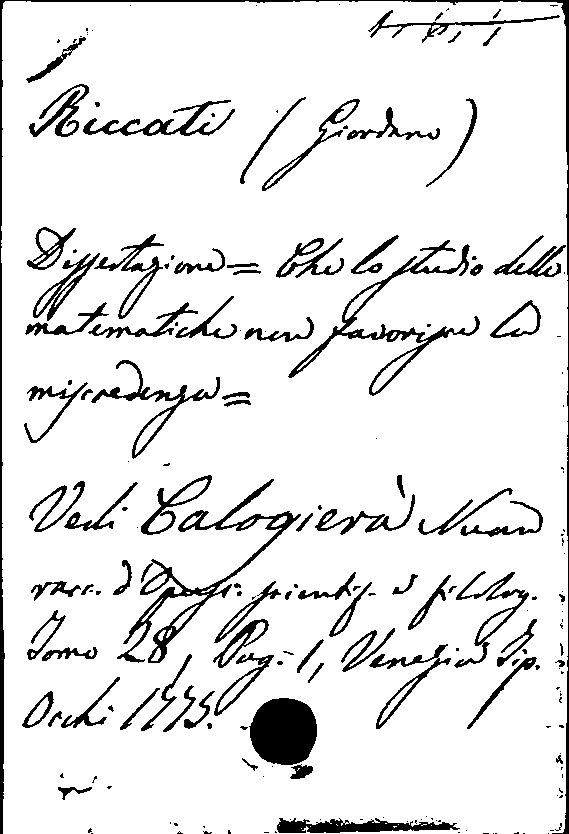 Riccati (Giordano)
Dissertazione = Che lo studio delle
matematiche non favorisce la
miscredenza =
Vedi Calogierà Nuova
racc. d'Opusc. scientif. e filolog.
Tomo 28, Pag. 1, Venezia Tip.
Occhi 1775.